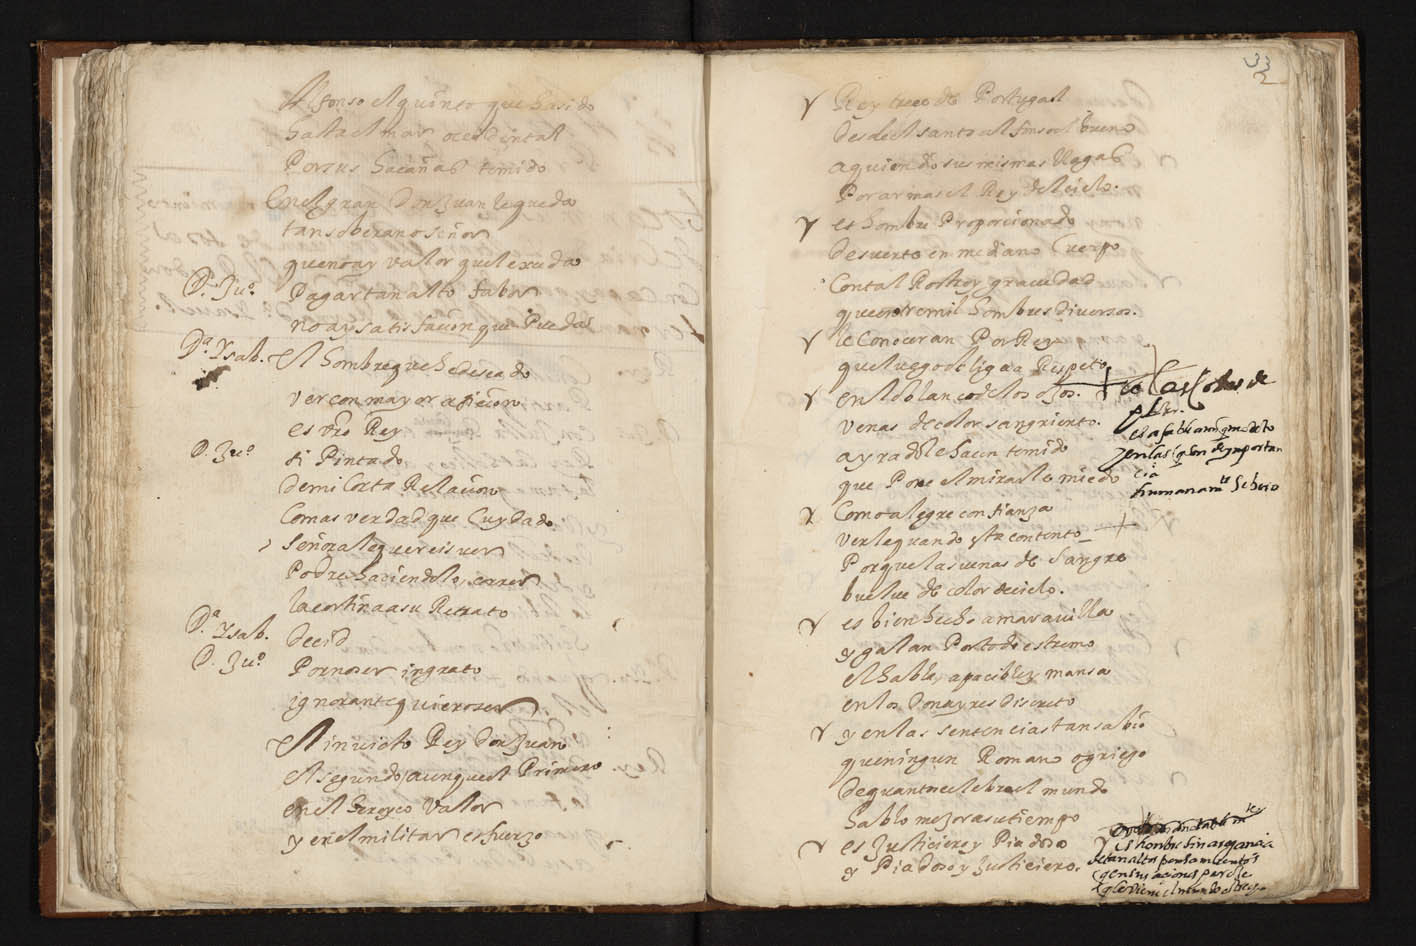 Alfonso el quinto que ha sido
hasta el mar ocedental
Por sus haçañas temido
En el gran Don Juan le queda
tan soberano señor
que no ay valor que le exceda
D. Juº. Pagar tan alto fabor
no ay satisfaçion que Pueda
Dª. Ysab. El hombre que he deseado
ver con mayor afiçion
es vro Rey
D. Juº si Pintado
de mi Corta Relaçion
Con mas verdad que Cuydado
señora le quereis ver
Podre haçiendole, correr
la cortina a su Retrato
Dª. Ysab. Decid
D. Juº Por no ser ingrato
ignorante quiero ser
El inuicto Rey Don Juan
el segundo, aunque el Primero
en el heroyco valor
y en el militar esfuerzo
33
2
Rey treçe de Portugal
desde el santo alfonso el bueno
a quien dio sus mismas llagas
Por armas el Rey del cielo.
es hombre Proporcionado
de suerte en mediano Cuerpo
Con tal Rostro y grauedad
que entre mil hombres diuersos.
le Conoceran Por Rey
que luego obliga a Respeto
en lo blanco de los ojos.
venas de color sangriento.
ayrado le haçen temido
que Pone el mirarle miedo
Como alegre confianza
verle quando esta contento
Porque las venas de sangre
buelue de color de cielo.
es bien hecho a marauilla
y galan Por todo estremo
el habla, apacible y mansa
en los donayres discreto
y en las sentencias tan sabio
que ningun Romano o griego
de quantos celebra el mundo
hablo mejor a su tiempo
es Justiciero y Piadoso
y Piadoso y Justiciero.
es afable
y en las que son de ymportan
cia
es hombre sin arrogancia
de tan altos pensamientos